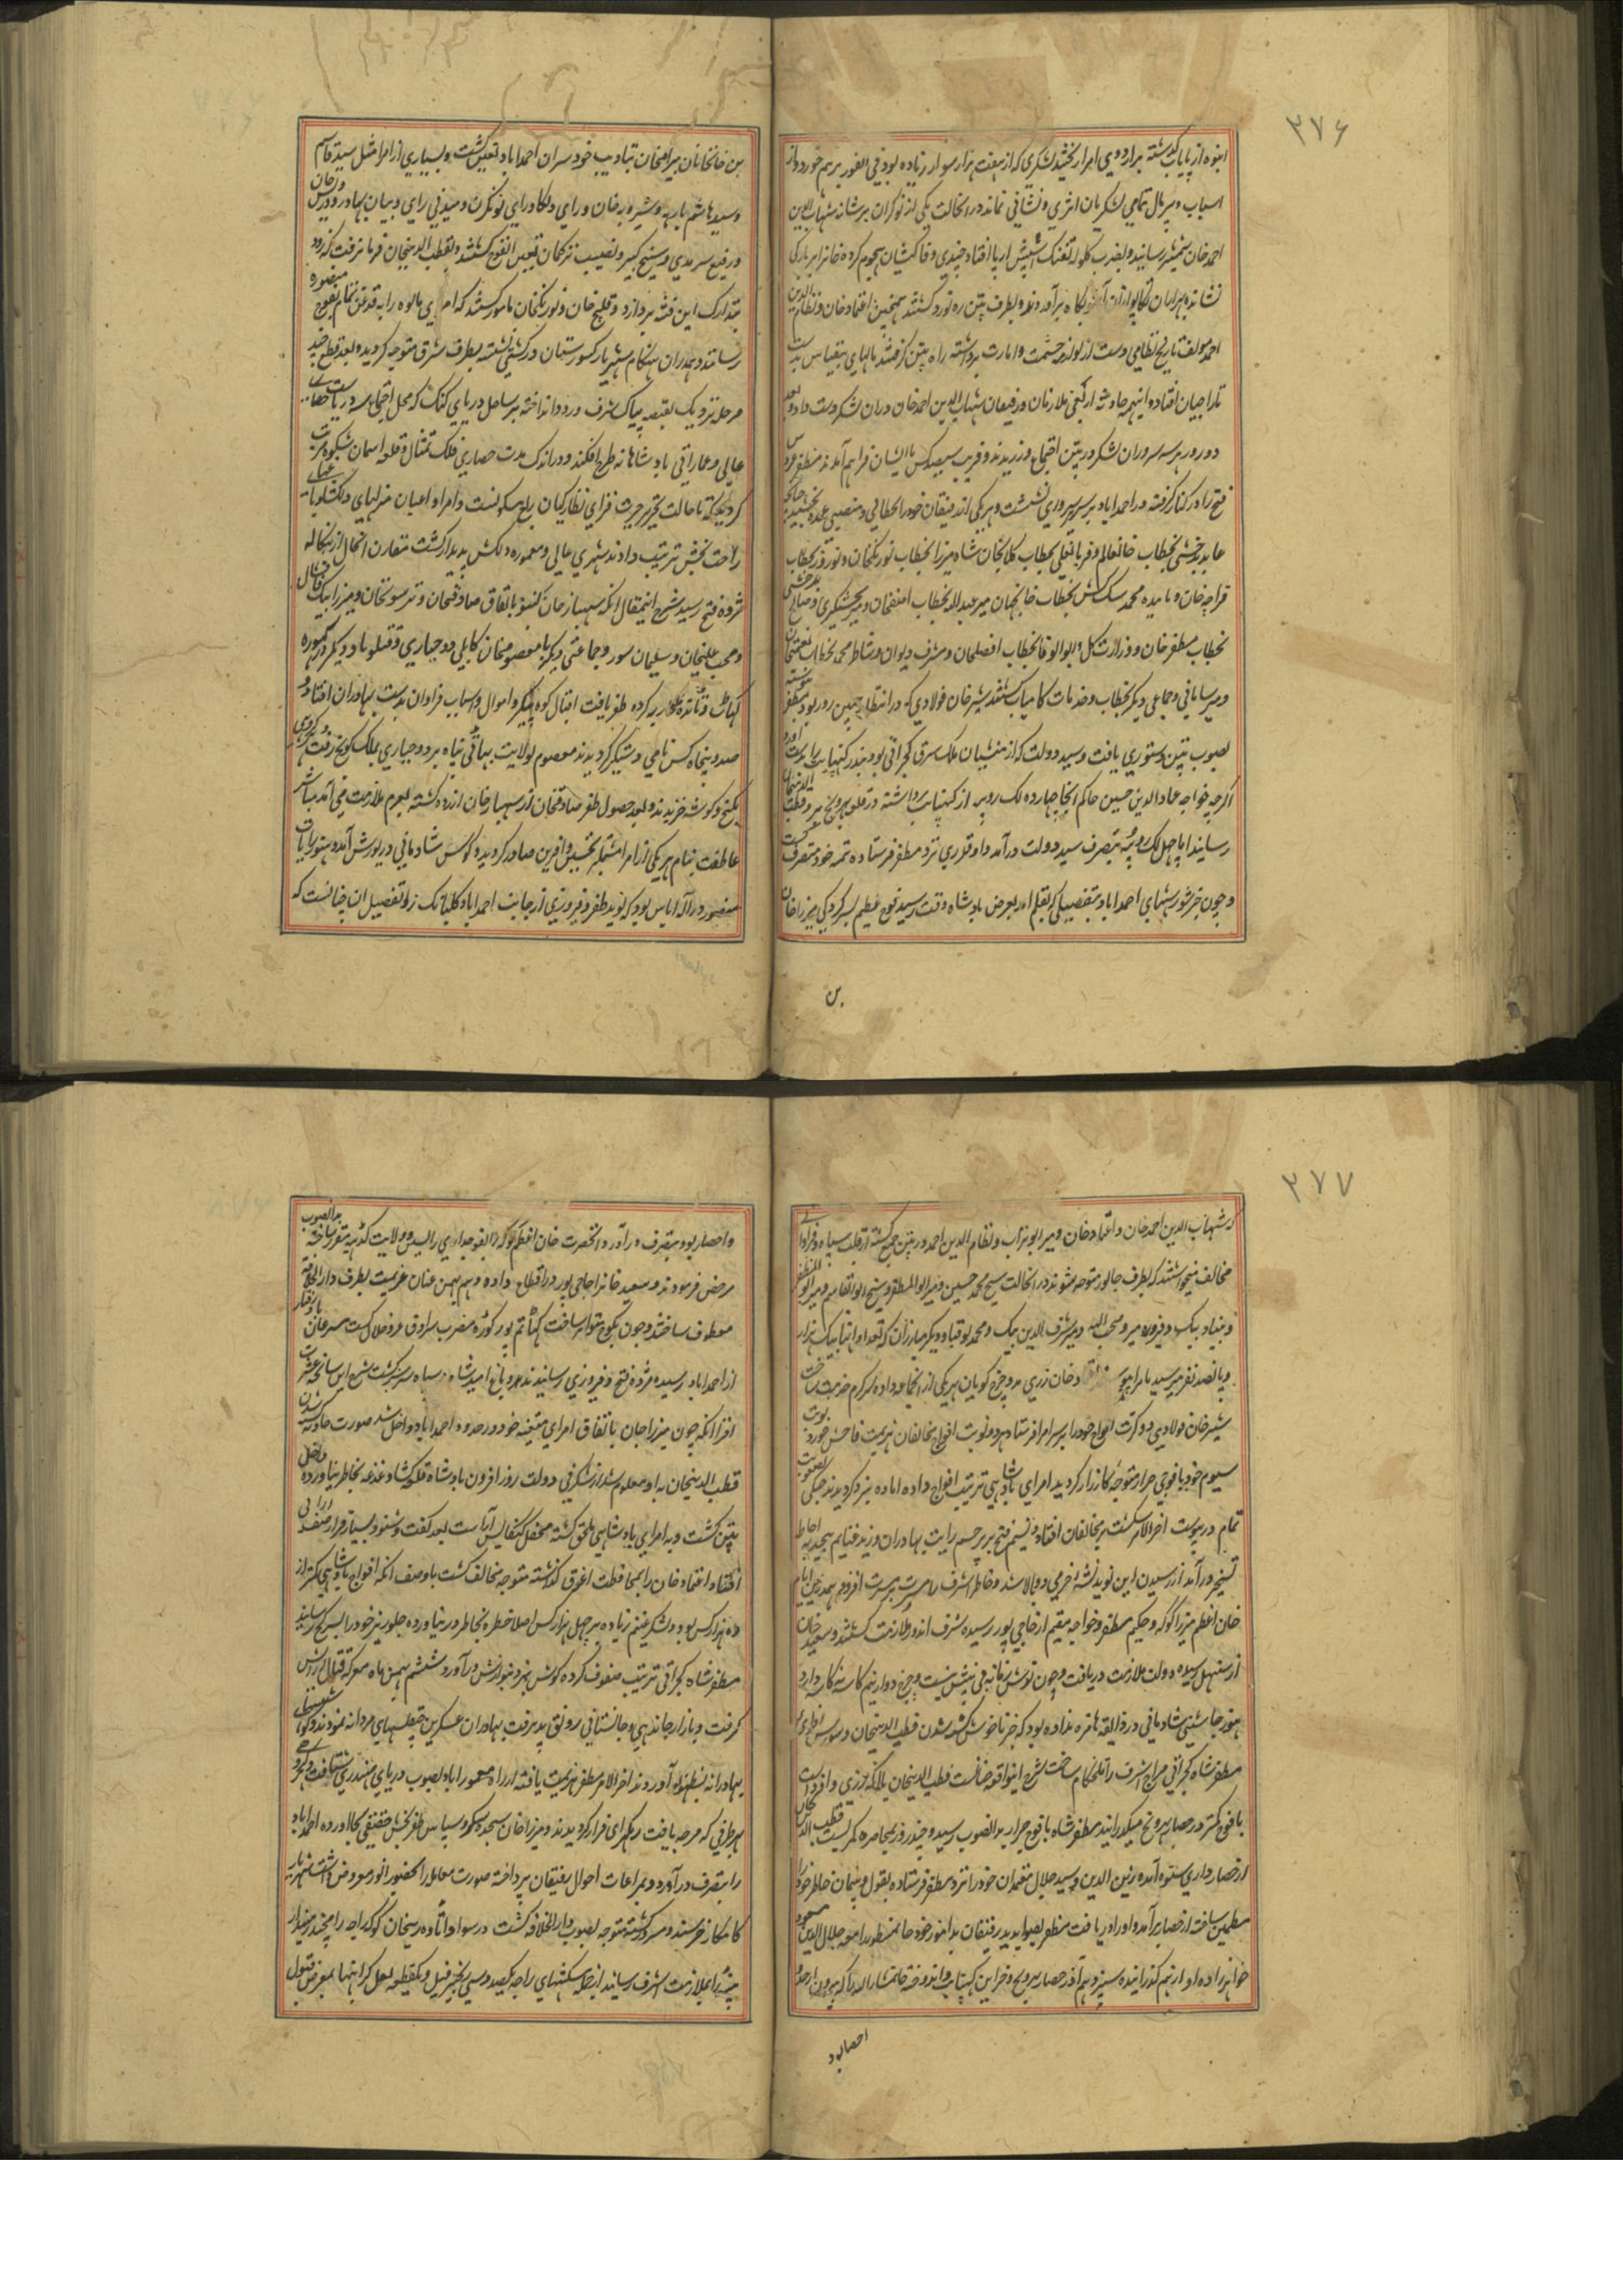 ۲۷۶
انبوه از پایاب گذشته بر اردوی امرا ریختند لشکری که از هفت هزار سوار زیاده بود فی الفور برهم خورد و از
اسباب و پرتال تمامی لشکریان اثری و نشانی نماند در انحالت یکی از نوکران بر شانه شهاب الدین
احمد خان شمشیر رسانید و بضرب کلوله تفنک اسپش از پا افتاد چندی وفاکیشان هجوم کرده خانرا بر بارکی
نشانده بطرف پتن ره نورد کشتند همچنین اعتماد خان و نظام الدین
احمد مولف تاریخ نظامی دست از لوازم حشمت و امارت برداشته راه پتن کرفتند مالهای بیقیاس بدست
تاراجیان افتاد و اینهمه حادثه از کجی ملازمان و رفیقان شهاب الدین احمد خان دران لشکر دست داد و بعد
دو روز هر سه سروران لشکر در پتن اجتماع ورزیدند و قریب سیصد کس با ایشان فراهم آمدند مظفر عروس
فتح را در کنار کرفته در احمداباد بر سریر سروری نشست و هر یکی از رفیقان خود را خطابی و منصبی عمده بخشید چنانچه
عابد بدخشی بخطاب خانعالم و قربانعلی بخطاب کلابخان شاه میرزا بخطاب نورنکخان و نوروز بخطاب
قراچه خان و باینده محمد سک کش بخطاب خانجهان میر عبدالله بخطاب اصفخان و میر بخشیکری و صالح بدخشی
بخطاب مظفر خان و وزارت کل و ابوالوفا بخطاب افضلخان و مشرف دیوان و نشاط محمد بخطاب معتمدخان
و میر سامانی و جماعی دیکر بخطاب و خدمات کامیاب کشتند شیر خان فولادی که در انتظار چنین روز بود بمظفر پیوسته
بصوب پتن دستوری یافت و سید دولت که از منشیان ملک شرق کجراتی بود بندر کنبهایت را بدست آورد
اکرچه خواجه عماد الدین حسین حاکم انجا چهارده لک روپیه از کنبهایت برداشته در قلعه بهروچ بر قطب الدینخان
رسانید اما چهل لک روپیه بتصرف سید دولت درآمد و او قدری نزد مظفر فرستاده تتمه خود متصرف کشت
و چون خبر شورشهای احمداباد بتفصیلی که بقلم امد بعرض بادشاه وقت رسید فوج عظیم بسرکردکی میرزا خان
بن
بن خانخانان بیرامخان بتادیب خودسران احمداباد تعین کشت و بسیاری از امرا مثل سید قاسم
و سید هاشم بارهه و شیرویه خان و رای درکا و رای لونکرن و میدنی رای و بیان بهادر و درویش خان
و رفیع سرمدی و شیخ کبیر و نصیب ترکمان تعین انفوج کشتند و بقطب الدینخان فرمان رفت که زود
بتدارک این فتنه پردازد و قلیج خان و نورنکخان مامور کشتند که امرای مالوه را بقدغن تمام بفوج منصوره
رسانند و همدران هنکام شهریار کسورستان در کشتی نشسته بطرف شرق متوجه کردید و بعد قطع چند
مرحله نزدیک بقصبه پیاک شرف ورود انداخته بر ساحل دریای کنک که محل اجتماع هر دو دریاست حصاری
عالی و عماراتی بادشاهانه طرح افکند و در اندک مدت حصاری فلک تمثال و قلعه اسمان شکوه مرتب
کردید که تا حالت تحریر حیرت فزای نظارکیان ربع مسکونست و امرا و اعیان منزلهای دلکشا و باغهای
راحت بخش ترتیب دادند شهری عالی و معموره دلکش پدیدار کشت مقارن انحال از بنکاله
مژده فتح رسید شرح اینمقال انکه شهباز خان کنبو باتفاق صادقخان و ترسونخان و میرزا بیک قاقشال
و محب علیخان و سلیمان سور و جماعتی دیکر با معصومخان کابلی و جباری و قتلو باد و دیکر
محاربه کرده ظفر یافت اقبال کوه پیکر و اموال و اسباب فراوان بدست بهادران افتاد و
صد و پنجاه کس نامی دستکیر کردیدند معصوم بولایت بهاتی پناه برد و جباری بملک کوچ رفت
بکنج و کوشه خزیدند و بعد حصول ظفر صادقخان از شهباز خان ازرده کشته بعزم ملازمت می آمد
عاطفت بنام هریکی از امرا مشتمل بر تحسین و افرین صادر کردید و کوس شادمانی در یورش آمد و هنوز رایات
منصور در اله اباس بود که نوید ظفر و فیروزی از جانب احمداباد کلبانک زد و تفصیل ان چنانست که
۲۷۷
که شهاب الدین احمد خان و اعتماد خان و میر ابوتراب و نظام الدین احمد در پتن جمع کشته از قلت سپاه و فراوانی
مخالف میخواستند که بطرف جالور متوجه شوند در انحالت شیخ محمد حسین و میر ابوالمظفر و شیخ ابوالقاسم و میر ابوالمظفر
و بنیاد بیک و فیروزه میر و محب الله و میر شرف الدین بیک و محمد بوقبا و دیکر مبارزان که تعداد انها بیک هزار
و پانصد نفر میرسید بامرا پیوستند اعتماد خان زری مدد خرج کویان هریکی از انجماعه داده سرکرم خدمت ساخت
شیر خان فولادی دو کرت افواج خود را بر سر امرا فرستاد هر دو نوبت افواج مخالفان هزیمت فاحش خورد نوبت
سیوم خود با فوجی جرار متوجه کارزار کردید امرای بادشاهی ترتیب افواج داده اماده نبرد کردیدند جنکی بصعوبت
تمام در پیوست اخرالامر شکست بر مخالفان افتاد و نسیم فتح بر پرچم رایت بهادران وزید غنایم بیحد
تسخیر در آمد از رسیدن این نوید نشهٔ خرمی دوبالا شد و خاطر اشرف را مسرت بر مسرت افزود و همدرین ایام
خان اعظم میرزا کوکه و حکیم مظفر و خواجه مقیم از حاجی پور رسیده شرف اندوز ملازمت کشتند و سعید خان
از سنبهل رسیده دولت ملازمت دریافت و چون نوش زمانه بی نیش نیست و چرخ دوار نیم کاسه در کاسه دارد
هنوز چاشنی شادمانی در ذایقه ها مزه نداده بود که خبر ناخوش کشته شدن قطب الدینخان و شورش افزونی
مظفر شاه کجراتی مزاج اشرف را تلخکام ساخت شرح اینواقعه انست قطب الدینخان بالکه زری و افزود
با فوج کمتر در حصار بهروچ میکذرانید مظفر شاه با فوج جرار بدانصوب رسید و چند روز بمحاصره کمر بست قطب الدینخان
از حصارداری ستوه آمده زین الدین و سید جلال معتمدان خود را نزد مظفر فرستاده بقول و پیمان خاطر خود
مطمین ساخته از حصار برآمد و او را دریافت مظفر بصوابدید رفیقان بدآموز خود خانمذکور را معه جلال الدین مسعود
خواهرزاده او از هم کذرانیده سیزدهم آذر حصار بهروچ و خزاین کنبهایت و اندوخته خانمشارالیه را که بیرون از حد
احصا بود
و احصار بود بتصرف درآورد انحضرت خان اعظم کوکه را بفوجداری رایسین و ولایت کدهه مقرر ساخته بدانصوب
مرخص فرمودند و سعید خانرا حاجی پور در اقطاع داده و هم بهمن عنان عزیمت بطرف دارالخلافه
معطوف ساختند و چون بکوچ متواتر ساحت کهاتم پور کوره مضرب سرادق عز و جلال کشت مسرعان بادرفتار
از احمداباد رسیده مژده فتح و فیروزی رسانیدند و باغ امید شاه و سپاه سرسبز کشت شرح این سانحه عشرت
افزا انکه چون میرزا خان باتفاق امرای متعینه خود در حدود احمداباد داخل شد صورت حادثه کشته شدن
قطب الدینخان باو معلوم شد از شکرفی دولت روز افزون بادشاه قلعه کشا دغدغه بخاطر نیاورده داخل
پتن کشت و به امرای بادشاهی ملحق کشته محفل کنکایش آراست بعد کفت و شنود بسیار قرار صف ارایی
افتاد اعتماد خان را بمحافظت اغرق کذاشته متوجه مخالف کشت باوصف انکه افواج بادشاهی کمتر از
ده هزار کس بود و لشکر غنیم زیاده بر چهل هزار کس اصلا خطره بخاطر در نیاورده جلوریز خود را بسرکیج رسانید
مظفر شاه کجراتی ترتیب صفوف کرده کوس نبرد بنوازش درآورد ششم بهمن ماه معرکه قتال ارایش
کرفت و بازار جانبازی و جانستانی رونق پذیرفت بهادران عسکرین چپقلشهای مردانه نمودند و کوششهای
بهادرانه بظهور آوردند اخرالامر مظفر هزیمت یافته از راه معموراباد بصوب دریای مهندری شتافت و دیکر
بهر طرفی که عرصه یافت رهکرای فرار کردیدند و میرزا خان سجده شکر و سپاس ظفر بخش حقیقی بجا اورده احمداباد
را بتصرف درآورد و بمراعات احوال رفیقان پرداخته صورت معامله را بحضور انور معروض داشت شهریار
کامکار خرسند و مسرور کشته متوجه بصوب دارالخلافه کشت در سواد اتاوه زینخان کوکه راجه رامچند زمیندار
پتنه را بملازمت اشرف رسانید از جمله پیشکشهای راجه یکصد و سی زنجیر فیل و یکقطعه لعل کرانبها بمعرض قبول